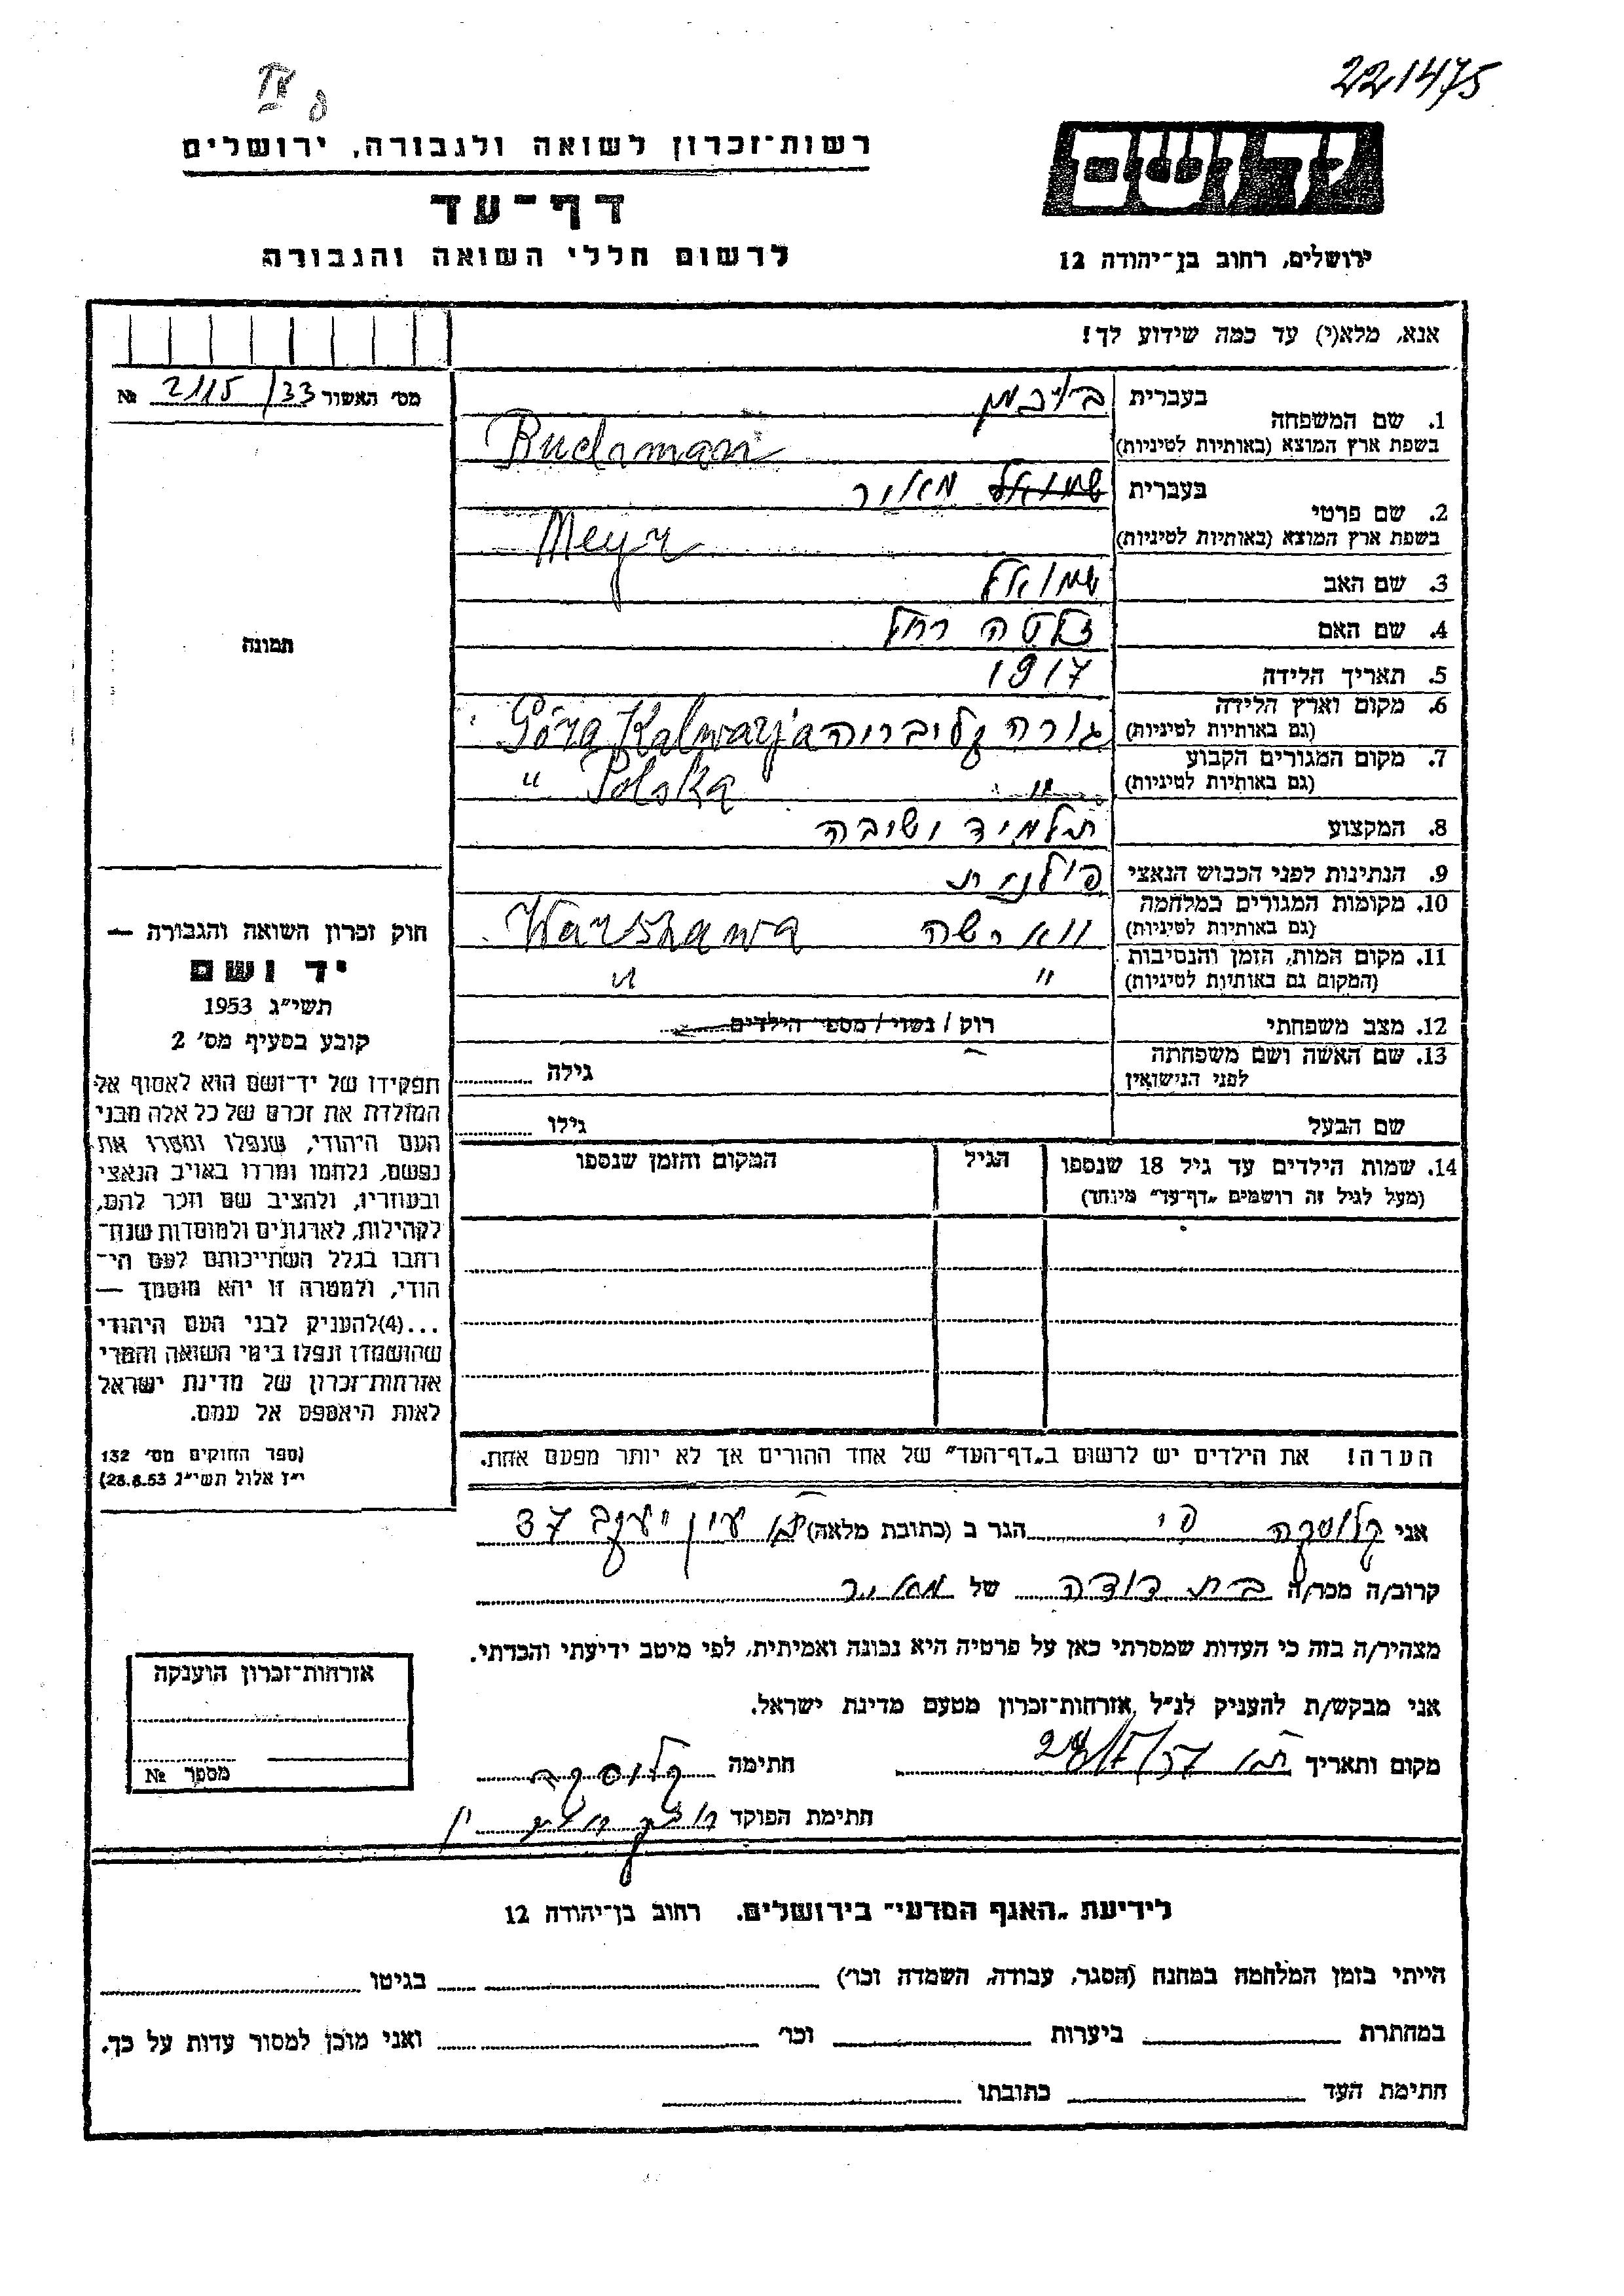 221475
IV
רשות־זכרון לשואה ולגבורה, ירושלים
דף־עד
לרשום חללי השואה והגבורה
יד ושם
ירושלים, רחוב בן־יהודה 12
אנא, מלא(י) עד כמה שידוע לך!
מס׳ האשור 2115/33 №
1. שם המשפחה
בעברית
בשפת ארץ המוצא (באותיות לטיניות)
2. שם פרטי
בעברית שמואל מאיר
בשפת ארץ המוצא (באותיות לטיניות) Meyr
3. שם האב שמואל
4. שם האם זלטה רחל
5. תאריך הלידה 1917
6. מקום וארץ הלידה
(גם באותיות לטיניות) גורה קליבריה Góra Kalwarja
7. מקום המגורים הקבוע
(גם באותיות לטיניות) " Polska "
8. המקצוע תלמיד ישיבה
9. הנתינות לפני הכבוש הנאצי פולנית
10. מקומות המגורים במלחמה
(גם באותיות לטיניות) ווארשה Warszawa
11. מקום המות, הזמן והנסיבות
(המקום גם באותיות לטיניות) " "
12. מצב משפחתי רוק / נשוי / מספר הילדים
13. שם האשה ושם משפחתה
לפני הנישואין גילה
שם הבעל גילו
14. שמות הילדים עד גיל 18 שנספו הגיל המקום והזמן שנספו
(מעל לגיל זה רושמים „דף־עד” מיוחד)
הערה! את הילדים יש לרשום ב„דף־העד” של אחד ההורים אך לא יותר מפעם אחת.
תמונה
חוק זכרון השואה והגבורה —
יד ושם
תשי״ג 1953
קובע בסעיף מס׳ 2
תפקידו של יד־ושם הוא לאסוף אל
המולדת את זכרם של כל אלה מבני
העם היהודי, שנפלו ומסרו את
נפשם, נלחמו ומרדו באויב הנאצי
ובעוזריו, ולהציב שם וזכר להם,
לקהילות, לארגונים ולמוסדות שנח־
רבו בגלל השתייכותם לעם הי־
הודי, ולמטרה זו יהא מוסמך —
...(4)להעניק לבני העם היהודי
שהושמדו ונפלו בימי השואה והמרי
אזרחות־זכרון של מדינת ישראל
לאות היאספם אל עמם.
(ספר החוקים מס׳ 132
י״ז אלול תשי״ג 28.8.53)
אני הגר ב (כתובת מלאה) 37
קרוב/ה מכר/ה בת דודה של מאיר
מצהיר/ה בזה כי העדות שמסרתי כאן על פרטיה היא נכונה ואמיתית, לפי מיטב ידיעתי והכרתי.
אני מבקש/ת להעניק לנ״ל אזרחות־זכרון מטעם מדינת ישראל.
מקום ותאריך חתימה
חתימת הפוקד
אזרחות־זכרון הוענקה
מספר №
לידיעת „האגף המדעי” בירושלים. רחוב בן־יהודה 12
הייתי בזמן המלחמה במחנה (הסגר, עבודה, השמדה וכו׳) בגיטו
במחתרת ביערות וכו׳ ואני מוכן למסור עדות על כך.
חתימת העד כתובתו